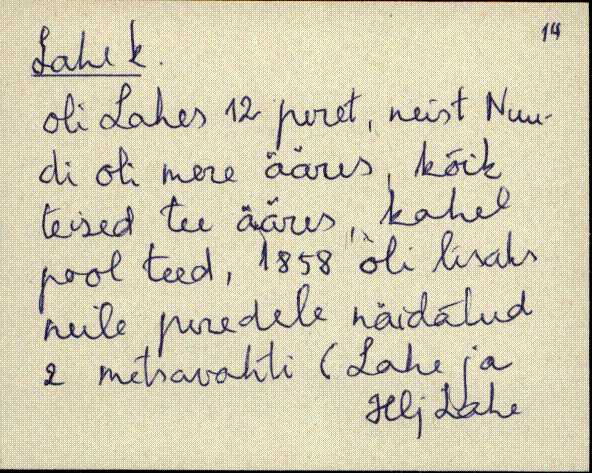 14
Lahe k.
oli Lahes 12 peret, neist Nuu-
di oli mere ääres, kõik
teised tee ääres, kahel
pool teed, 1858 oli lisaks
neile peredele näidatud
2 metsavahti (Lahe ja
Hlj Lahe